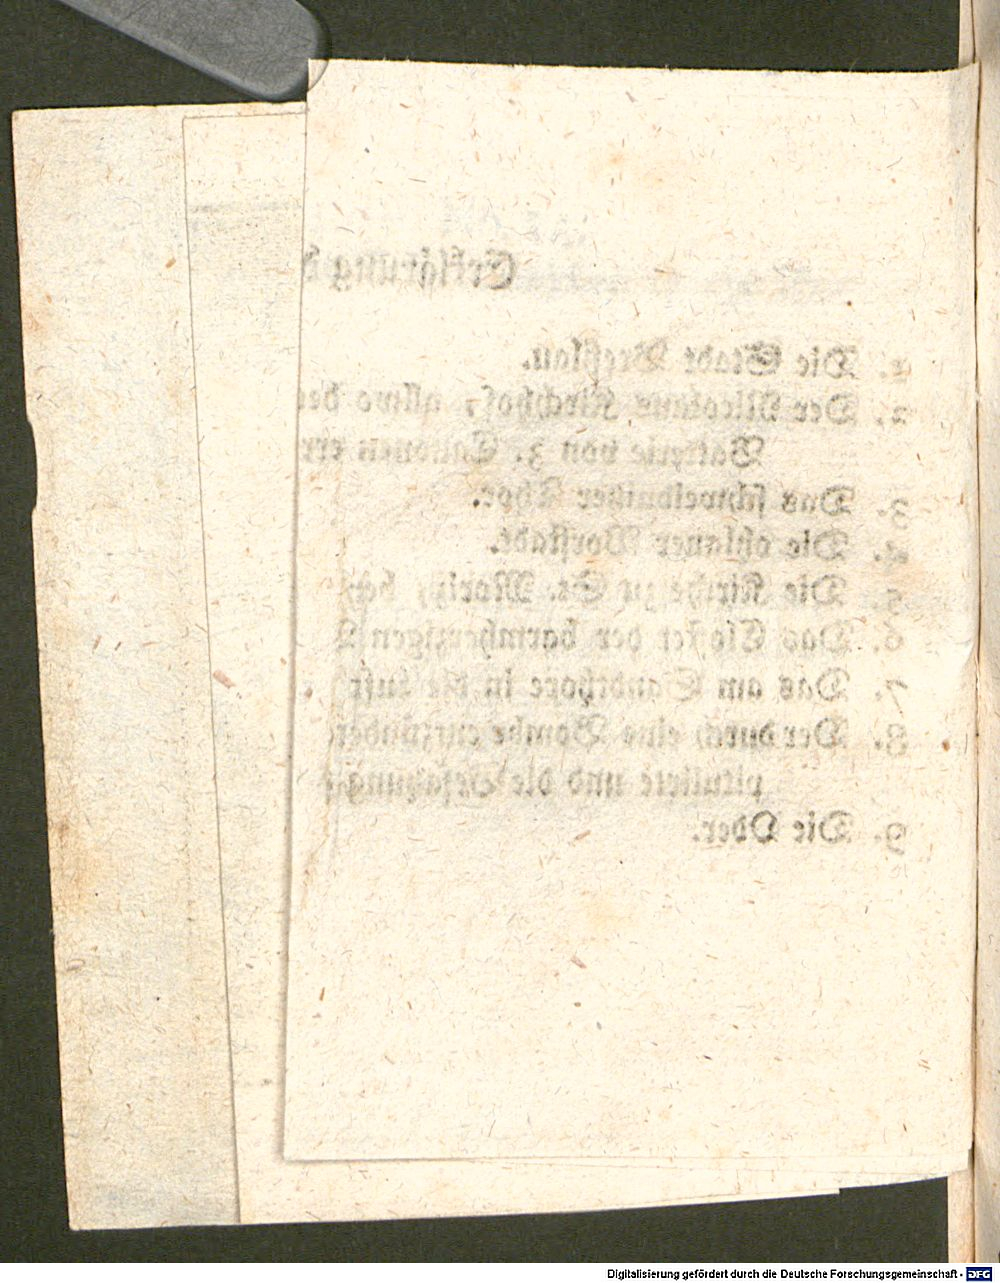 Erklärung d
1. Die Stadt Breßlau.
2. Der Nicolaus Kirchhof, allwo der
Batterie von 3. Canonen err
3. Das schweidnitzer Thor.
4. Die ohlauer Vorstadt.
5. Die Kirche zu St. Moritz, bey
6. Das Closter der barmhertzigen
7. Das am Sandthore in die Luft
8. Der durch eine Bombe entzündete
pitulirte und die Besatzung
9. Die Oder.
Digitalisierung gefördert durch die Deutsche Forschungsgemeinschaft - DFG